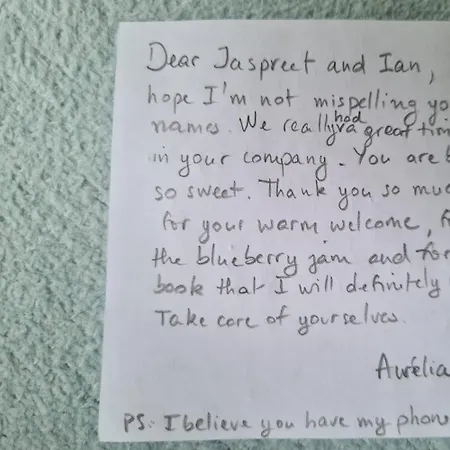 Dear Jaspreet and Ian,
hope I'm not mispelling yo
names. We really had a great tim
in your company. You are b
so sweet. Thank you so muc
for your warm welcome, f
the blueberry jam and for
book that I will definitely
Take care of yourselves.
Aurélia
PS: I believe you have my phon